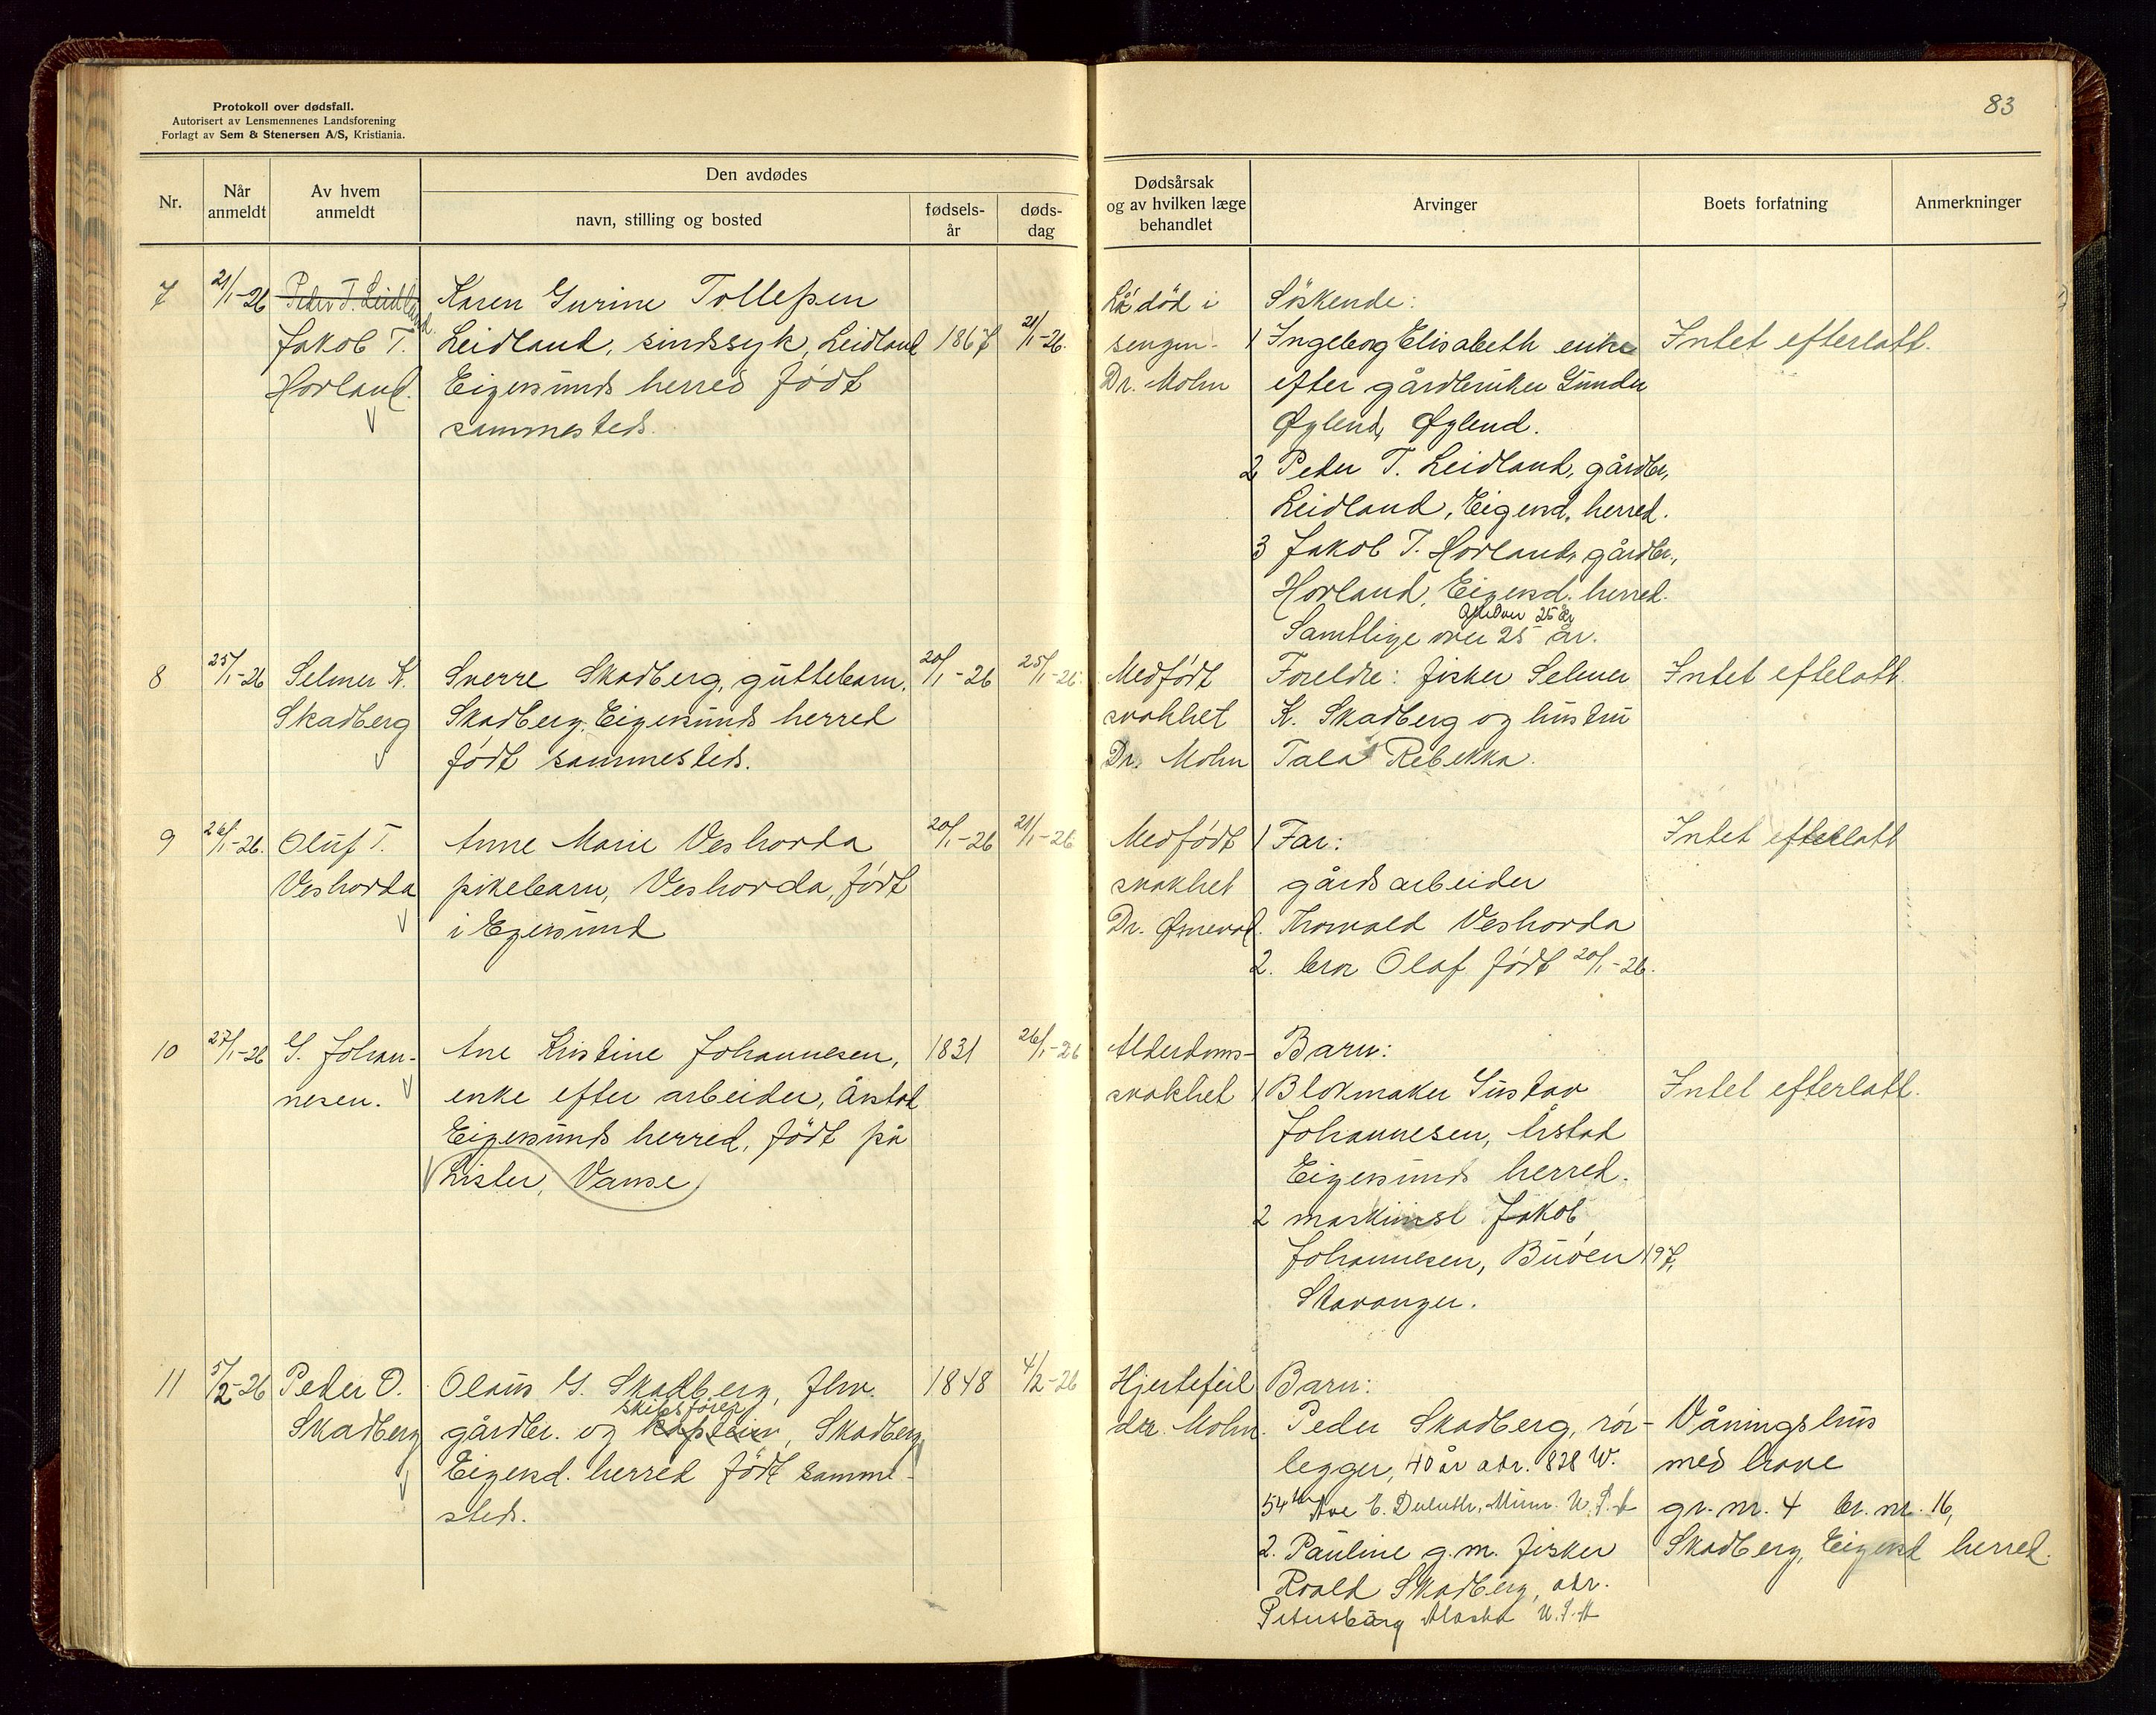 Protokoll over dødsfall.
Autorisert av Lensmennenes Landsforening
Forlagt av Sem & Stenersen A/S, Kristiania.
83
Nr.
Når anmeldt
Av hvem anmeldt
Den avdødes
navn, stilling og bosted
fødselsår
dødsdag
Dødsårsak og av hvilken læge behandlet
Arvinger
Boets forfatning
Anmerkninger
7
21/1-26
Peder T. Leidland.
Jakob T.
Horland.
Karen Gurine Tollefsen
Leidland, sindssyk, Leidland
Eigersunds herred født
sammesteds.
1867
21/1-26.
Lå død i
sengen.
Dr. Mohn
Søskende:
1 Ingeborg Elisabeth enke
efter gårdbruker Gunder
Øglend, Øglend.
2 Peder T. Leidland, gårdbr,
Leidland, Eigersd. herred.
3 Jakob T. Horland, gårdbr.,
Horland, Eigersd. herred.
Samtlige over 25 år.
Intet efterlatt.
8
25/1-26
Selmer K.
Skadberg
Sverre Skadberg, guttebarn.
Skadberg, Eigersunds herred
født sammesteds.
20/1-26
25/1-26.
Medfødt
svakhet
Dr. Mohn
Foreldre: fisker Selmer
K. Skadberg og hustru
Tala Rebekka.
Intet eftelatt
9
26/1-26.
Oluf T.
Veshorda
Anne Marie Veshorda
pikebarn, Veshorda, født
i Egersund
20/1-26
21/1-26
Medfødt
svakhet
1 Far:
gårdsarbeider
Thorvald Veshorda
2. bror Olaf født 20/1-26.
Intet efterlatt
10
27/1-26
G. Johan-
nesen.
Ane Kristine Johannesen,
enke efter arbeider, Årstad
Eigersunds herred, født på
Lister, Vanse.
1831
26/1-26
Alderdoms-
svakhet
Barn:
1 Blokmaker Gustav
Johannesen, Årstad
Eigersunds herred.
2 maskinist Jakob
Johannesen, Buøen 197,
Stavanger.
Intet efterlatt.
11
5/2-26
Peder O.
Skadberg
Olaus G. Skadberg, fhv.
skibsfører
gårdbr. og kaptein, Skadberg,
Eigersd. herred født samme-
steds.
1848
4/2-26
Hjertefeil
dr. Mohn.
Barn:
Peder Skadberg, rør-
legger, 40 år adr. 828 W.
54th Ave E. Duluth, Minn. U.S.A
2. Pauline g.m. fisker
Roald Skadberg, adr.
Petersburg Alaska U.S.A
Våningshus
med have
gr. nr. 4 br. nr. 16,
Skadberg, Eigersd herred.